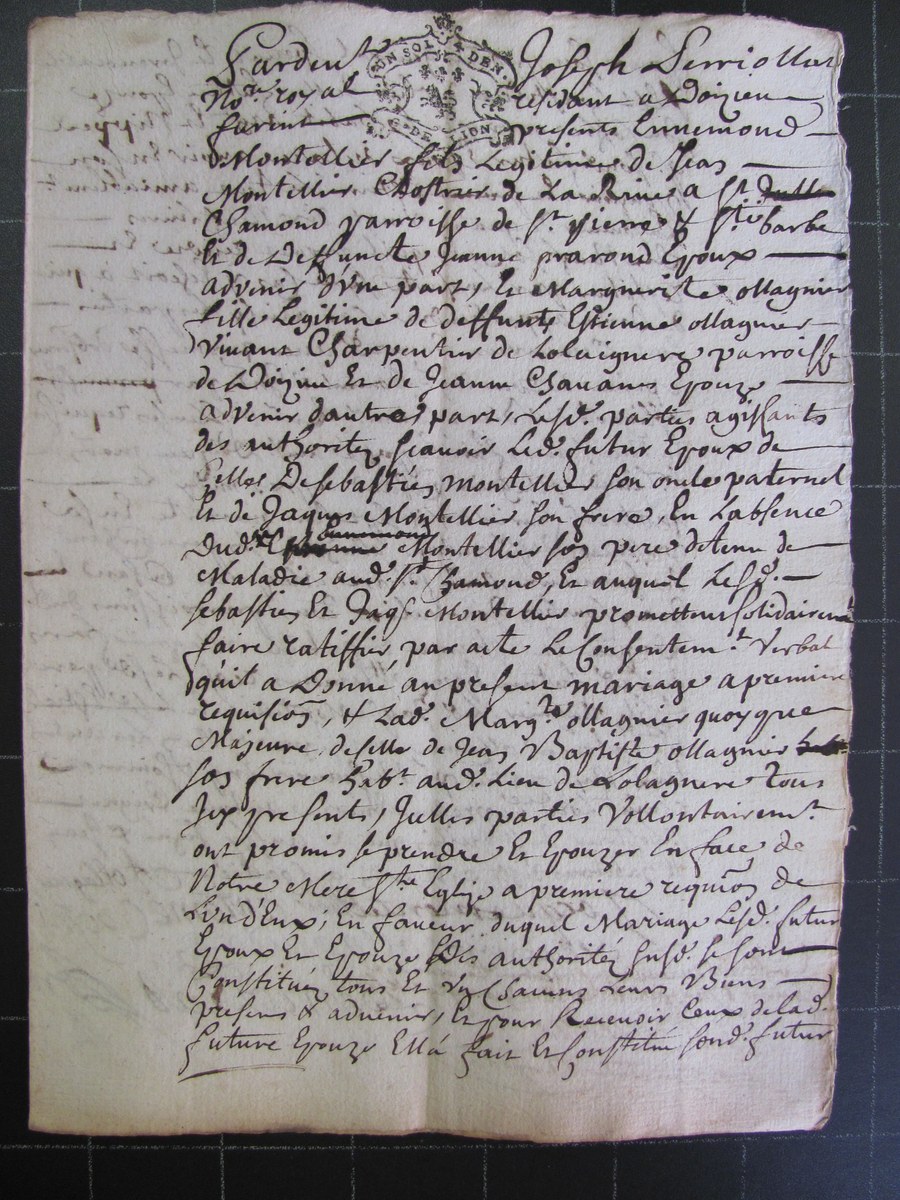 Pardevt Joseph Perriollat
Nore royal residant a Doizieu
furent presents Ennemond
Montellier fils Legitime de Jean
Montellier de La Rive a St
Chamond parroisse de St pierre & Ste barbe
Et de Deffuncte Jeanne prarond Epoux
advenir d'vne part, Et Marguerite ollagnier
fille Legitime de deffunts Estienne ollagnier
Vivant Charpentier de parroisse
de Doizieu Et de Jeanne Chavanes Epouze
advenir dautre part, Lesd. parties agissants
des authoritez scauoir Led. futur Epoux de
celles De sebastien montellier son oncle paternel
Et de Jaques Montellier son frere, En Labsence
Dud. Montellier son pere detenu de
Maladie aud. St Chamond, Et auquel Lesd.
sebastien Et Jaqs Montellier promettent solidairemt
faire ratiffier par acte Le Consentemt Verbal
quil a Donné au present mariage a premiere
requision, & Lad. Margte ollagnier quoy que
Majeure de celle de Jean Baptiste ollagnier
son frere habt aud. Lieu de Lolagnere tous
Jcy presents, Jcelles parties Vollontairemt
ont promis se prendre Et Epouzer En face de
Notre Mere Ste Eglize a premiere requion de
Lvn d'Eux; En faveur duquel Mariage Lesd. futur
Epoux Et Epouze Des authoritéz susd. se sont
Constituéz tous Et Vn Chacuns Leurs Biens
presens & advenir, Et pour Recevoir Ceux de lad.
future Epouze Ella fait Et Constitué sond. futur